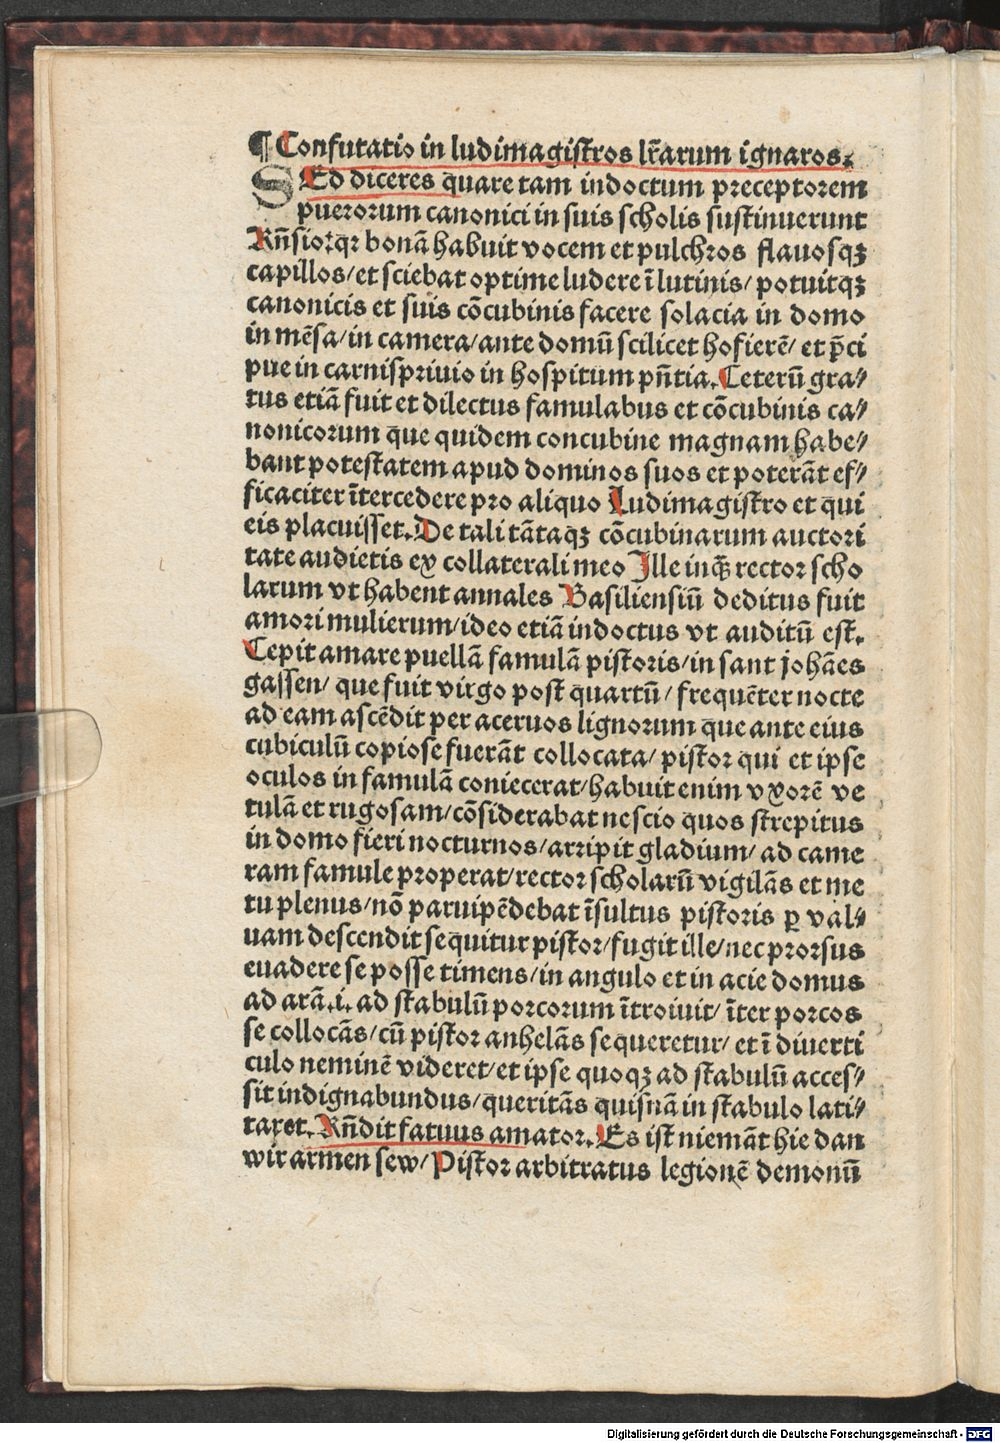 ¶ Confutatio in ludimagistros lr̄arum ignaros.
SEd diceres quare tam indoctum preceptorem
puerorum canonici in suis scholis sustinuerunt
Rn̄sio:qꝛ bonā habuit vocem et pulchros flauosqꝫ
capillos/et sciebat optime ludere ī lutinis/ potuitqꝫ
canonicis et suis cōcubinis facere solacia in domo
in mēsa/in camera/ante domū scilicet hofierē/ et p̄ci
pue in carnispriuio in hospitum pn̄tia. Ceterū gra⸗
tus etiā fuit et dilectus famulabus et cōcubinis ca⸗
nonicorum que quidem concubine magnam habe⸗
bant potestatem apud dominos suos et poterāt ef⸗
ficaciter ītercedere pro aliquo Ludimagistro et qui
eis placuisset. De tali tātaqꝫ cōcubinarum auctori
tate audietis ex collaterali meo Ille inqͣꝫ rector scho
larum vt habent annales Basiliensiū deditus fuit
amori mulierum/ideo etiā indoctus vt auditū est.
Cepit amare puellā famulā pistoris/in sant johāes
gassen/ que fuit virgo post quartū/ frequēter nocte
ad eam ascēdit per aceruos lignorum que ante eius
cubiculū copiose fuerāt collocata/ pistor qui et ipse
oculos in famulā coniecerat/habuit enim vxorē ve
tulā et rugosam/cōsiderabat nescio quos strepitus
in domo fieri nocturnos/arripit gladium/ ad came
ram famule properat/rector scholarū vigilās et me
tu plenus/nō paruipēdebat īsultus pistoris ꝑ val⸗
uam descendit sequitur pistor/fugit ille/nec prorsus
euadere se posse timens/in angulo et in acie domus
ad arā.i. ad stabulū porcorum ītroiuit/ īter porcos
se collocās/cū pistor anhelās sequeretur/ et ī diuerti
culo neminē videret/et ipse quoqꝫ ad stabulū acces⸗
sit indignabundus/queritās quisnā in stabulo lati⸗
taret. Rn̄dit fatuus amator. Es ist niemāt hie dan
wir armen sew/Pistor arbitratus legionē demonū
Digitalisierung gefördert durch die Deutsche Forschungsgemeinschaft - DFG